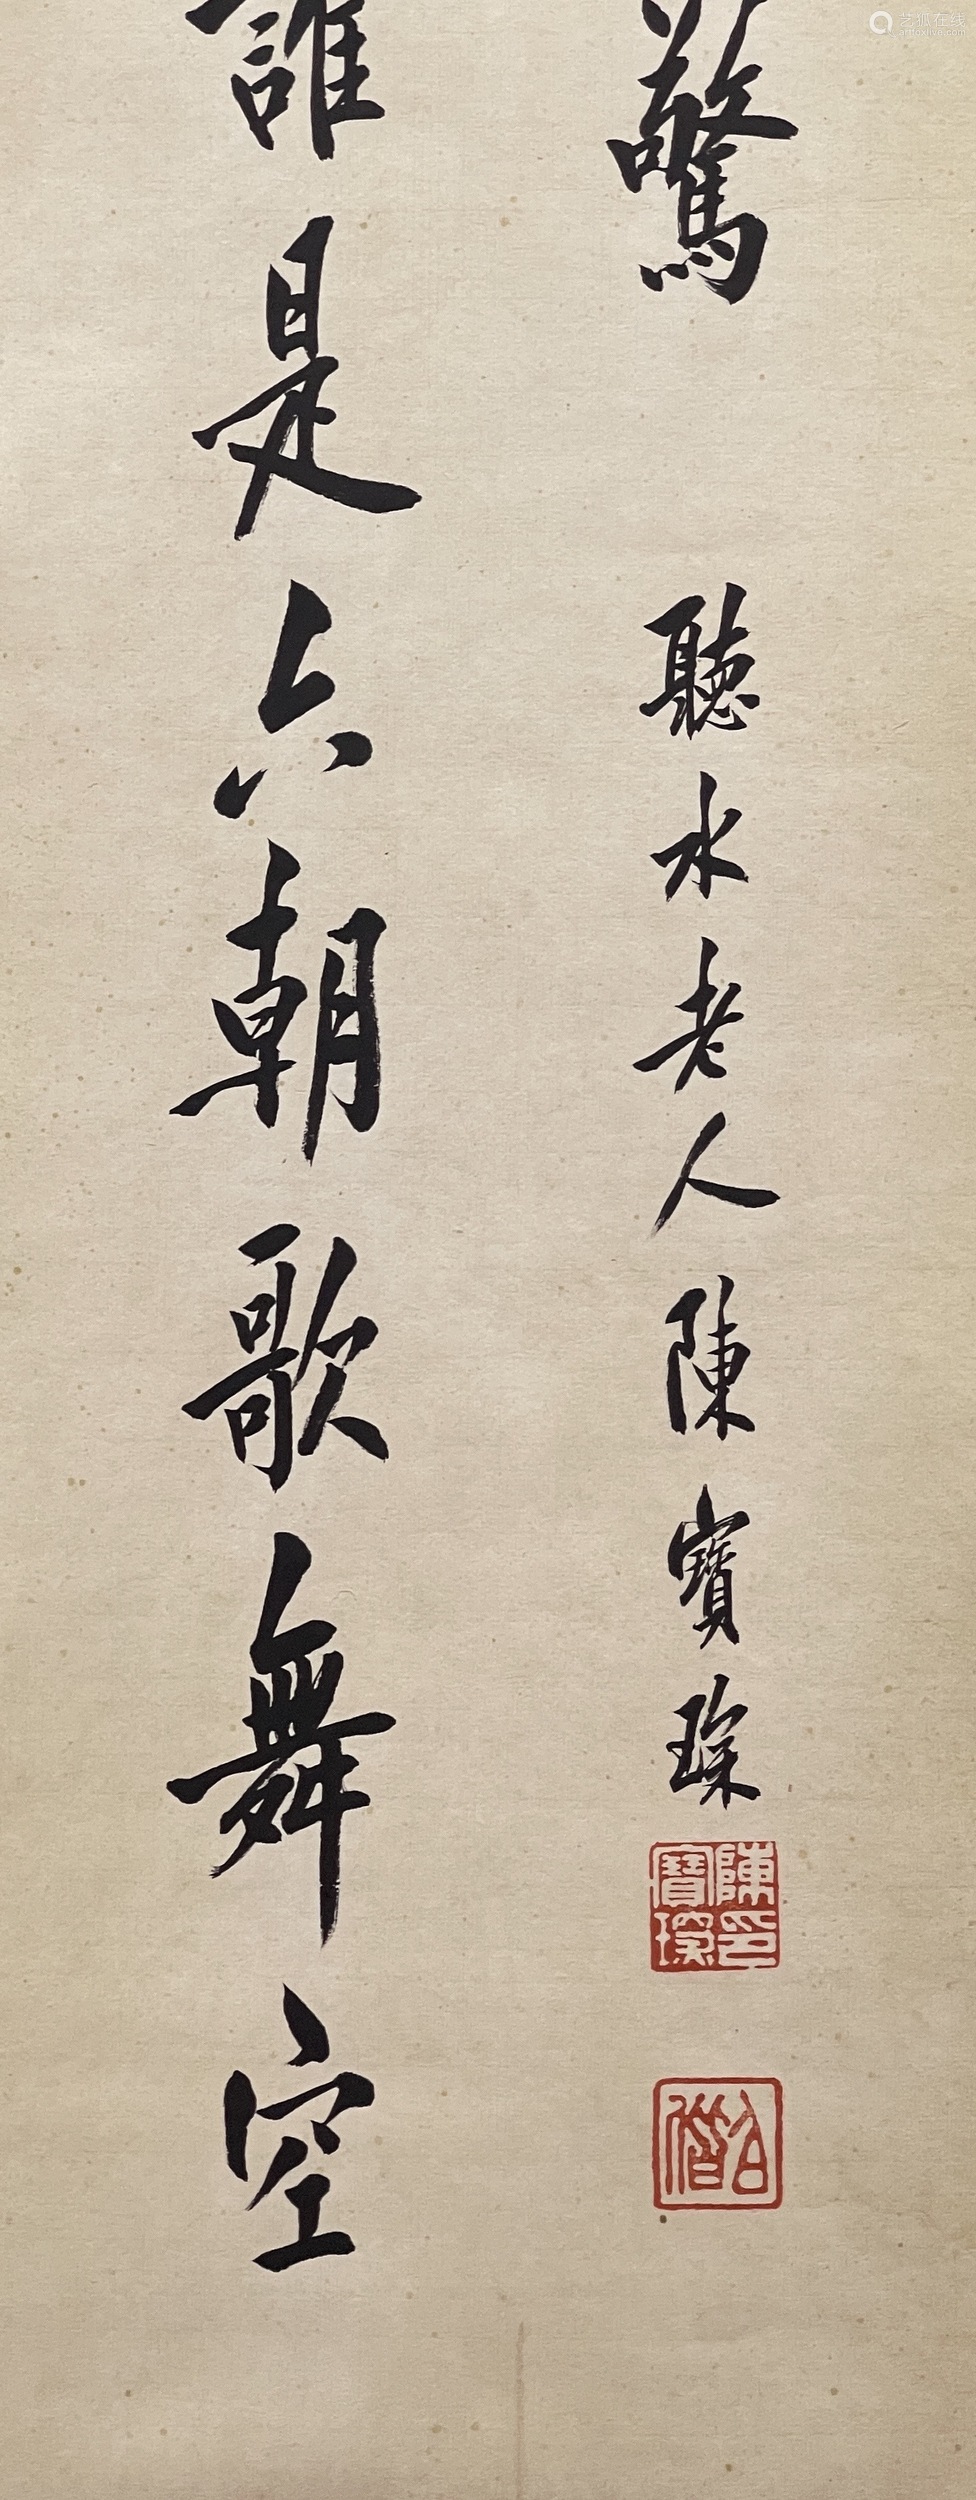 驚
聽水老人陳寶琛
陳寶琛印
誰是六朝歌舞空
艺狐在线
artfoxlive.com